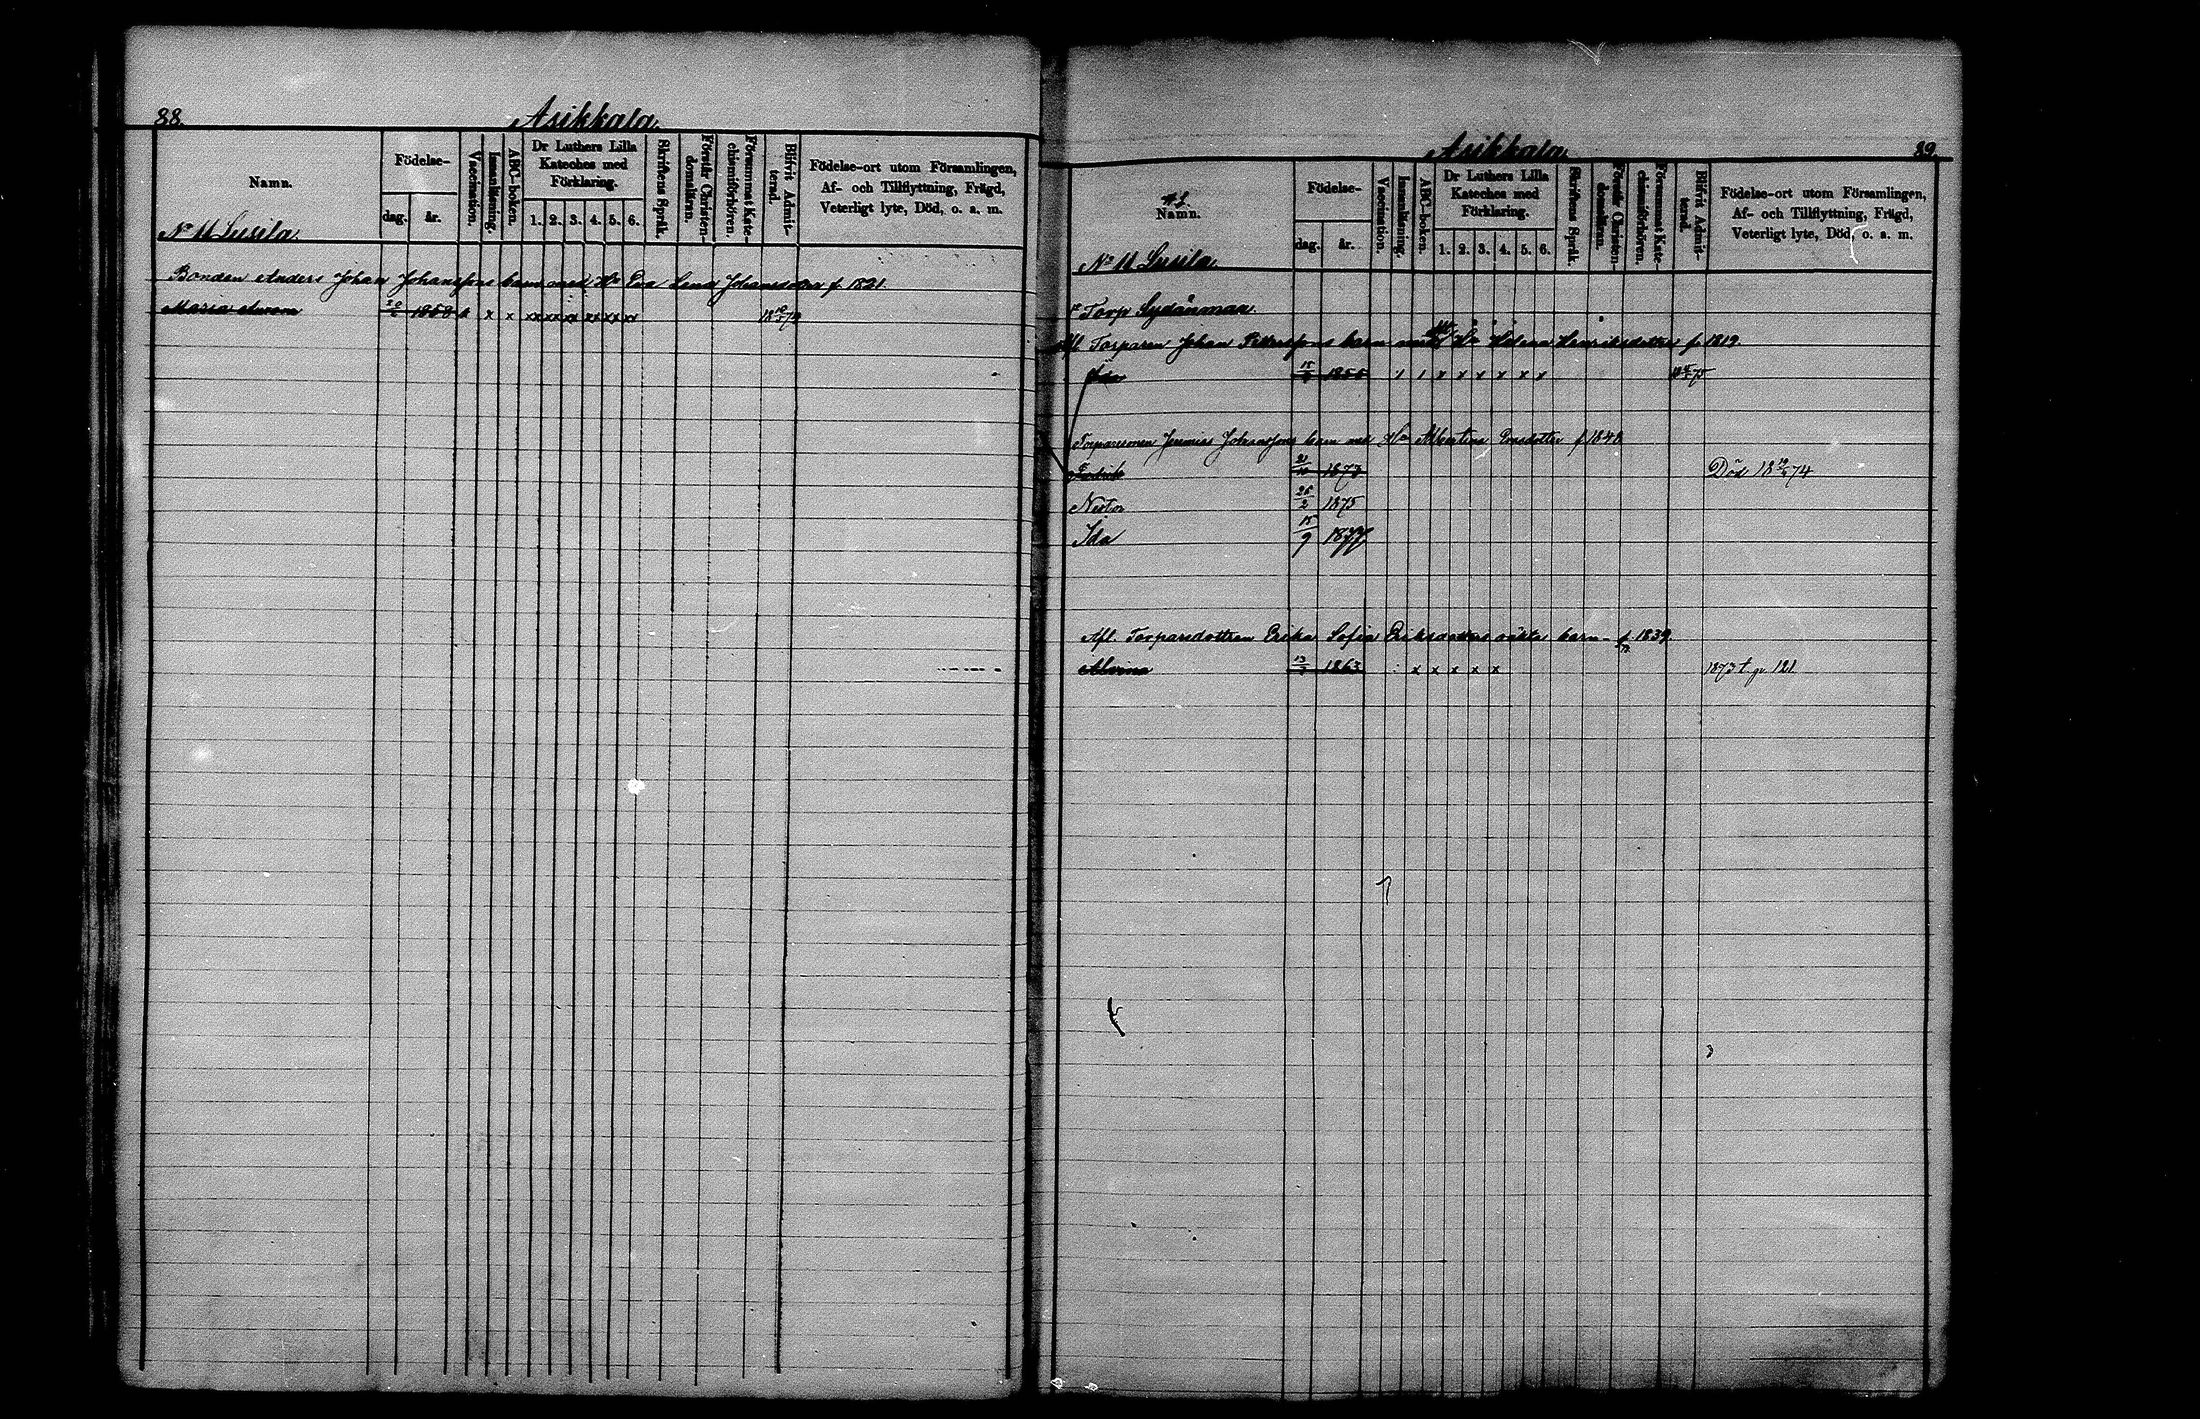 88.
Asikkala.
Namn.
Födelse-
dag. år.
Vaccination.
Innanläsning.
ABC-boken.
Dr Luthers Lilla Kateches med Förklaring.
1. 2. 3. 4. 5. 6.
Skriftens Språk.
Förstår Christendomsläran.
Försummat Katechismiförhören.
Blifvit Admitterad.
Födelse-ort utom Församlingen,
Af- och Tillflyttning, Frägd,
Veterligt lyte, Död, o. s. m.
No 11 Susila.
Bonden Anders Johan Johanssons barn med Hu Eva Lena Johansdotter f. 1821.
Maria 1858 x x x xx xx xx xx xx xx
89.
Asikkala.
Namn.
Födelse-
dag. år.
Vaccination.
Innanläsning.
ABC-boken.
Dr Luthers Lilla Kateches med Förklaring.
1. 2. 3. 4. 5. 6.
Skriftens Språk.
Förstår Christendomsläran.
Försummat Katechismiförhören.
Blifvit Admitterad.
Födelse-ort utom Församlingen,
Af- och Tillflyttning, Frägd,
Veterligt lyte, Död, o. s. m.
No 11 Susila.
Torp Sydänmaa
Afl. Torparen Johan Petterssons barn med Hu Helena Henriksdotter f. 1819.
Ida 1855 x x x x x x
Torparesonen Jeremias Johanssons barn med Hu Albertina f. 1848
Fredrik 21/10 1873 Död 18 19/6 74
Nestor 25/2 1875
Ida 15/9 1877
Afl. Torparedottren Erika Sofia Eriksdotters oäkta barn f. 1839
Alvina 1863 x x x x x 1873 t. p. 121